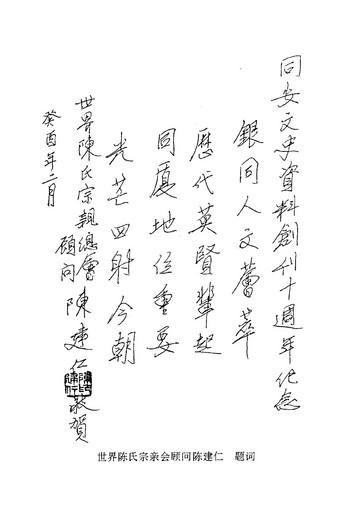 同安文史資料創刊十週年纪念
銀同人文薈萃
歷代英賢輩起
同厦地位重要
光芒四射今朝
世界陳氏宗親總會
顧问陳建仁敬賀
癸酉年二月
世界陈氏宗亲会顾问陈建仁　题词